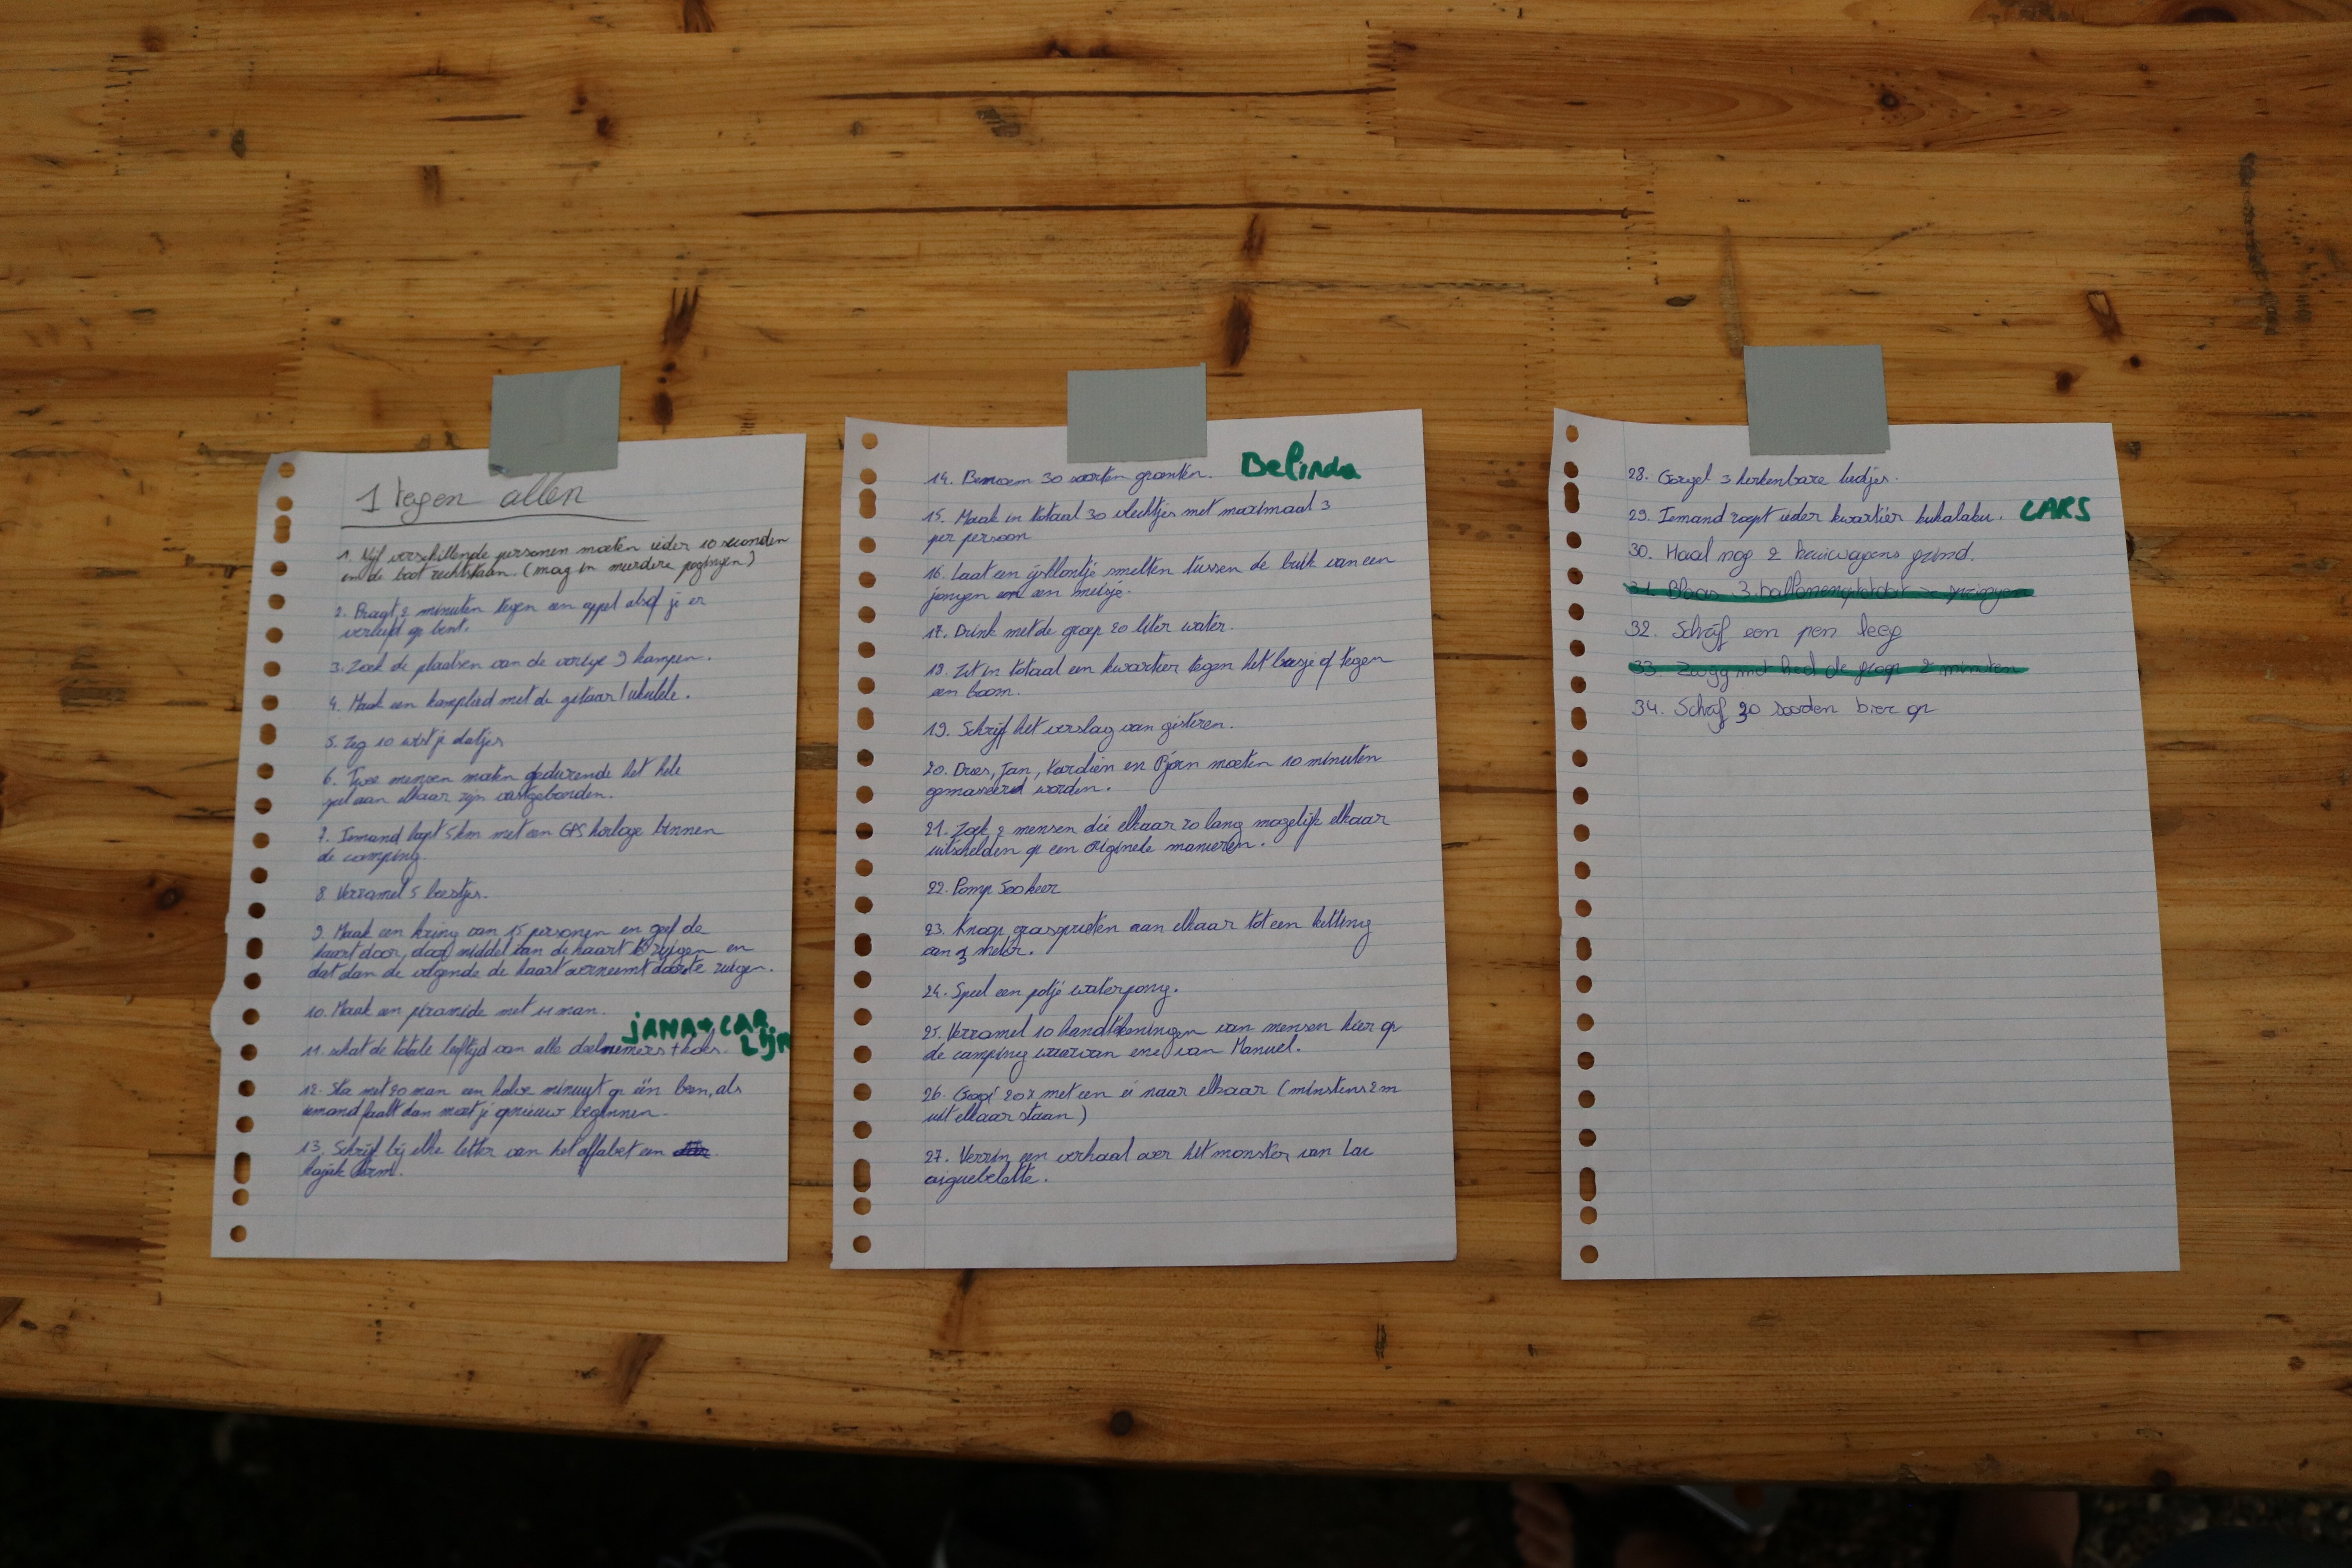 1 tegen allen
1. Vijf verschillende personen moeten ieder 10 seconden
in de boot rechtstaan. (mag in meerdere pogingen)
2. Praat 2 minuten tegen een appel alsof je er
verliefd op bent.
3. Zoek de plaatsen van de vorige 9 kampen.
4. Maak een kamplied met de gitaar/ukulele.
5. Zeg 10 wist je datjes
6. Twee mensen moeten gedurende het hele
spel aan elkaar zijn vastgebonden.
7. Iemand loopt 5km met een GPS horloge binnen
de camping.
8. Verzamel 5 beestjes.
9. Maak een kring van 15 personen en geef de
kaart door, door middel van de kaart te zuigen en
dat dan de volgende de kaart overneemt door te zuigen.
10. Maak een piramide met 14 man.
JANA + CAR
LIJN
11. schat de totale leeftijd van alle deelnemers + koks.
12. Sta met 20 man een halve minuut op één been, als
iemand faalt dan moet je opnieuw beginnen.
13. Schrijf bij elke letter van het alfabet een
kajak term.
14. Benoem 30 soorten groenten. Belinda
15. Maak in totaal 30 vlechtjes met maximaal 3
per persoon
16. Laat een ijsklontje smelten tussen de buik van een
jongen en een meisje.
17. Drink met de groep 20 liter water.
18. Zit in totaal een kwartier tegen het of tegen
een boom.
19. Schrijf het verslag van gisteren.
20. Dries, Jan, en Bjorn moeten 10 minuten
gemasseerd worden.
21. Zoek 2 mensen die elkaar zo lang mogelijk elkaar
uitschelden op een originele manieren.
22. Pomp 500 keer
23. Knoop grassprieten aan elkaar tot een ketting
van 3 meter.
24. Speel een potje waterpong.
25. Verzamel 10 handtekeningen van mensen hier op
de camping waarvan ene van Manuel.
26. Gooi 20x met een ei naar elkaar (minstens 2m
uit elkaar staan)
27. Verzin een verhaal over het monster van Lac
aiguebelette.
28. Gorgel 3 herkenbare liedjes.
29. Iemand roept ieder kwartier bukalaku. LARS
30. Haal nog 2 kruiwagens grind.
31. Blaas 3 ballonnen tot dat ze springen
32. Schrijf een pen leeg
33. Zwijg met heel de groep 2 minuten
34. Schrijf 30 soorten bier op